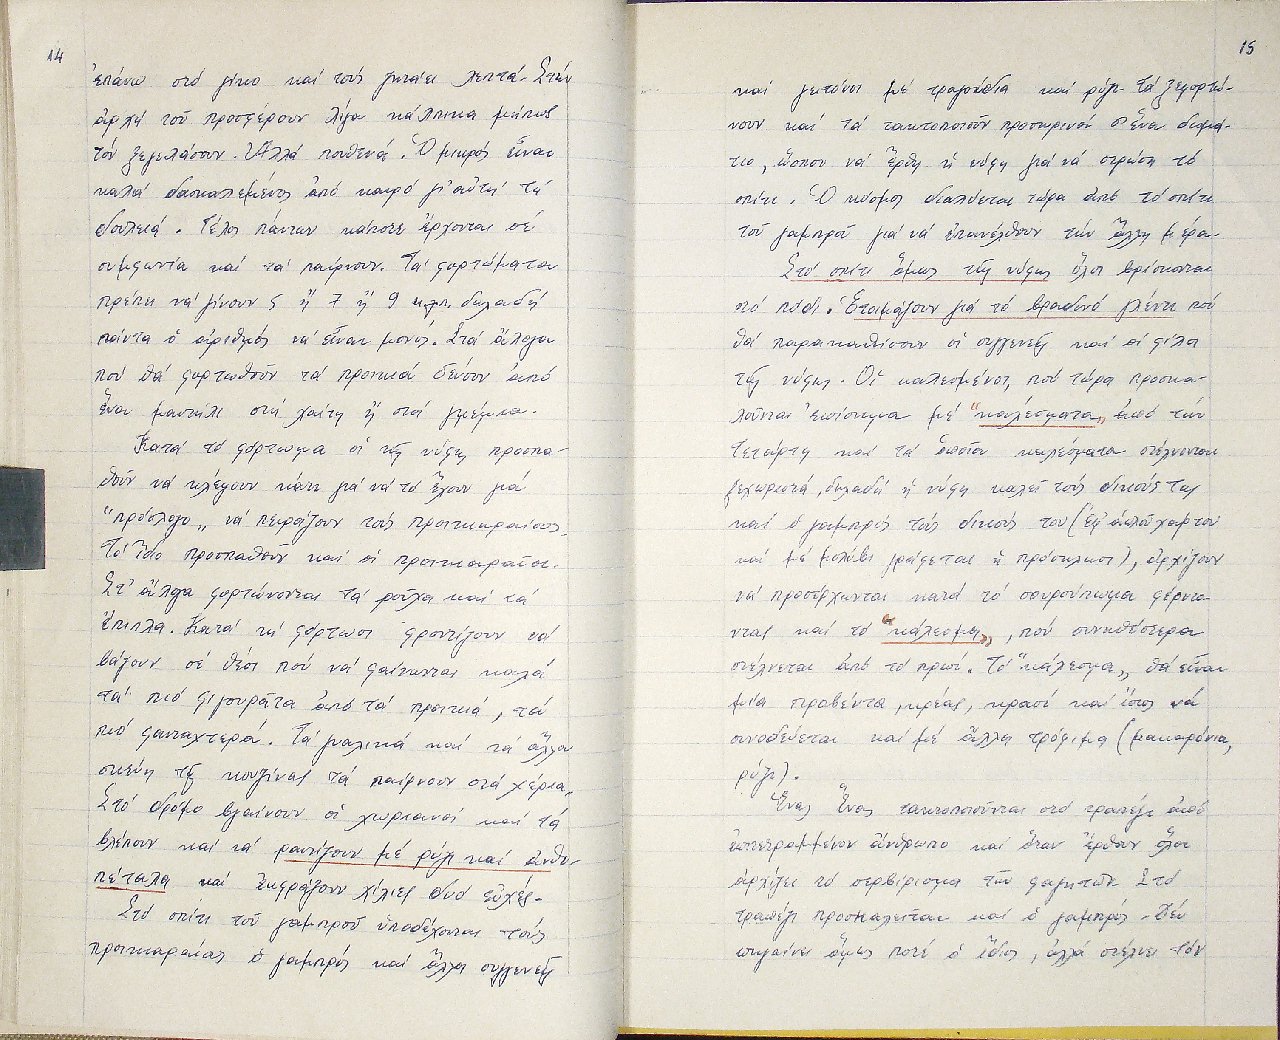 14
ἐπάνω στό γίκο καί τούς ζητάει λεπτά. Στήν
ἀρχή τοῦ προσφέρουν λίγα κάλπικα μήπως
τόν ξεγελάσουν. Ἀλλά πουθενά. Ὁ μικρός εἶναι
καλά δασκαλεμένος ἀπό καιρό γι' αὐτή τή
δουλειά. Τέλος πάντων κάποτε ἔρχονται σέ
συμφωνία καί τά παίρνουν. Τά φορτώματα
πρέπει νά γίνουν 5 ἤ 7 ἤ 9 κ.λ.π. δηλαδή
πάντα ὁ ἀριθμός νά εἶναι μονός. Στά ἄλογα
πού θά φορτωθοῦν τά προικιά δένουν ἀπό
ἕνα μαντήλι στή χαίτη ἤ στά γκέμια.
Κατά τό φόρτωμα οἱ τῆς νύφης προσπα-
θοῦν νά κλέψουν κάτι γιά νά τό ἔχουν γιά
"πρόσλογο„ νά πειράζουν τούς προικιαραίους.
Τό ἴδιο προσπαθοῦν καί οἱ προικιαραῖοι.
Στ' ἄλογα φορτώνονται τά ροῦχα καί τά
ἔπιπλα. Κατά τή φόρτωσι φροντίζουν νά
βάζουν σέ θέσι πού νά φαίνωνται καλά
τά πιό φιγουρᾶτα ἀπό τά προικιά, τά
πιό φανταχτερά. Τά γυαλικά καί τά ἄλλα
σκεύη τῆς κουζίνας τά παίρνουν στά χέρια.
Στό δρόμο βγαίνουν οἱ χωριανοί καί τά
βλέπουν καί τά ραντίζουν μέ ρύζι καί ἀνθο-
πέταλα καί ἐκφράζουν χίλιες δυό εὐχές.
Στό σπίτι τοῦ γαμπροῦ ὑποδέχονται τούς
προικιαραίους ὁ γαμπρός καί ἄλλοι συγγενεῖς
15
καί γειτόνοι μέ τραγούδια καί ρύζι. Τά ξεφορτώ-
νουν καί τά τακτοποιοῦν προσωρινά σ' ἕνα δωμά-
τιο, ὥσπου νά ἔρθη ἡ νύφη γιά νά στρώση τό
σπίτι. Ὁ κόσμος διαλύεται τώρα ἀπό τό σπίτι
τοῦ γαμπροῦ γιά νά ἐπανέλθουν τήν ἄλλη μέρα.
Στό σπίτι ὅμως τῆς νύφης ὅλοι βρίσκονται
στό πόδι. Ἑτοιμάζουν γιά τό βραδυνό γλέντι πού
θά παρακαθίσουν οἱ συγγενεῖς καί οἱ φίλοι
τῆς νύφης. Οἱ καλεσμένοι, πού τώρα προσκα-
λοῦνται ἐπίσημα μέ "καλέσματα„ ἀπό τήν
Τετάρτη καί τά ὁποῖα καλέσματα στέλνονται
ξεχωριστά, δηλαδή ἡ νύφη καλεῖ τούς δικούς της
καί ὁ γαμπρός τούς δικούς του (ἐφ' ἁπλοῦ χαρτοῦ
καί μέ μολύβι γράφεται ἡ πρόσκλησι), ἀρχίζουν
νά προσέρχωνται κατά τό σουρούπωμα φέρνο-
ντας καί τό "κάλεσμα„, πού συνηθέστερα
στέλνεται ἀπό τό πρωί. Τό "κάλεσμα„ θά εἶναι
μιά προβέντα, κρέας, κρασί καί ἴσως νά
συνοδεύεται καί μέ ἄλλα τρόφιμα (μακαρόνια,
ρύζι).
Ἕνας Ἕνας τακτοποιοῦνται στό τραπέζι ἀπό
ἐπιτετραμμένον ἄνθρωπο καί ὅταν ἔρθουν ὅλοι
ἀρχίζει τό σερβίρισμα τῶν φαγητῶν. Στό
τραπέζι προσκαλεῖται καί ὁ γαμπρός. Δέν
πηγαίνει ὅμως ποτέ ὁ ἴδιος, ἀλλά στέλνει τόν